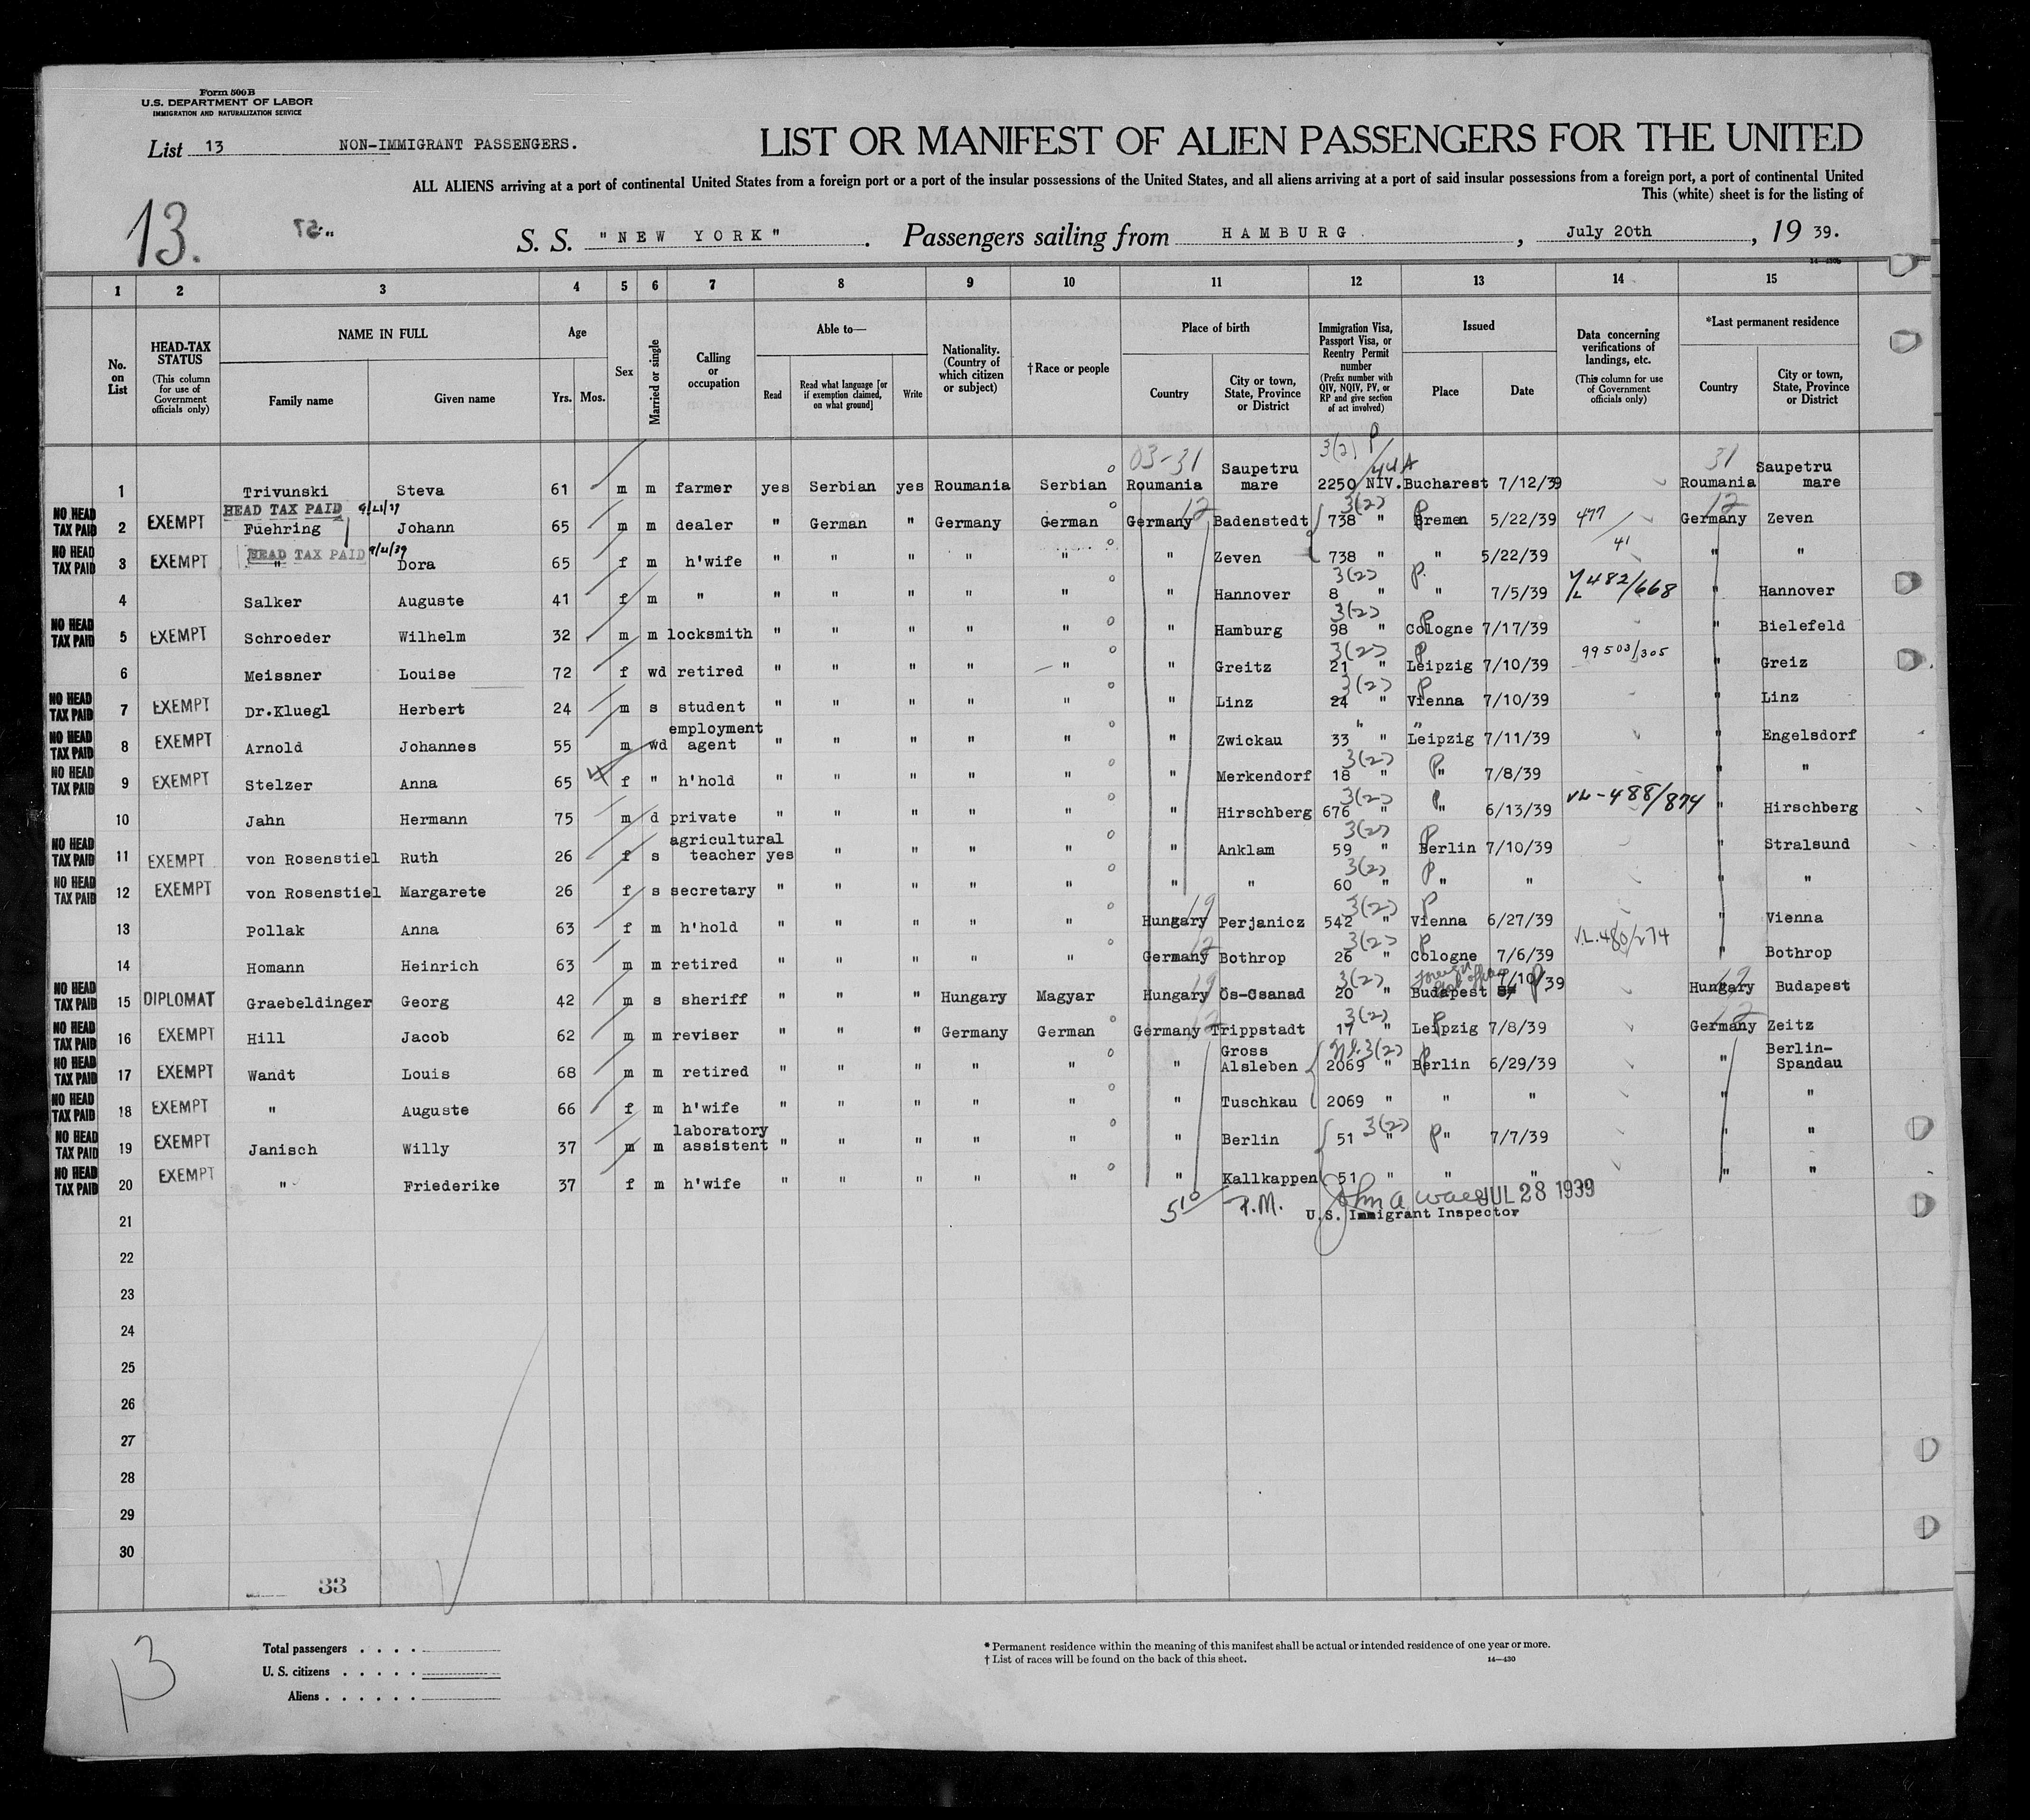 Form 500B
U.S. DEPARTMENT OF LABOR
IMMIGRATION AND NATURALIZATION SERVICE
List 13 NON-IMMIGRANT PASSENGERS.
LIST OR MANIFEST OF ALIEN PASSENGERS FOR THE UNITED
ALL ALIENS arriving at a port of continental United States from a foreign port or a port of the insular possessions of the United States, and all aliens arriving at a port of said insular possessions from a foreign port, a port of continental United
This (white) sheet is for the listing of
13.
S. S. "NEW YORK" . Passengers sailing from HAMBURG , July 20th , 19 39.
1 2 3 4 5 6 7 8 9 10 11 12 13 14 15
No. on List
HEAD-TAX STATUS (This column for use of Government officials only)
NAME IN FULL
Family name Given name
Age
Yrs. Mos.
Sex
Married or single
Calling or occupation
Able to—
Read Read what language [or if exemption claimed, on what ground] Write
Nationality. (Country of which citizen or subject)
†Race or people
Place of birth
Country City or town, State, Province or District
Immigration Visa, Passport Visa, or Reentry Permit number (Prefix number with QIV, NQIV, PV, or RP and give section of act involved)
Issued
Place Date
Data concerning verifications of landings, etc. (This column for use of Government officials only)
*Last permanent residence
Country City or town, State, Province or District
03-31 3(2) P 44A 31
1 Trivunski Steva 61 m m farmer yes Serbian yes Roumania Serbian Roumania Saupetru mare 2250 NIV. Bucharest 7/12/39 Roumania Saupetru mare
HEAD TAX PAID 12 3(2) P 12
NO HEAD TAX PAID 2 EXEMPT Fuehring Johann 65 m m dealer " German " Germany German Germany Badenstedt 738 " Bremen 5/22/39 477/41 Germany Zeven
HEAD TAX PAID 9/21/39
NO HEAD TAX PAID 3 EXEMPT " Dora 65 f m h'wife " " " " " " Zeven 738 " " 5/22/39 " "
3(2) P.
4 Salker Auguste 41 f m " " " " " " " Hannover 8 " " 7/5/39 482/668 " Hannover
3(2) P
NO HEAD TAX PAID 5 EXEMPT Schroeder Wilhelm 32 m m locksmith " " " " " " Hamburg 98 " Cologne 7/17/39 " Bielefeld
3(2) P
6 Meissner Louise 72 f wd retired " " " " " " Greitz 21 " Leipzig 7/10/39 99503/305 " Greiz
3(2) P
NO HEAD TAX PAID 7 EXEMPT Dr.Kluegl Herbert 24 m s student " " " " " " Linz 24 " Vienna 7/10/39 " Linz
" "
NO HEAD TAX PAID 8 EXEMPT Arnold Johannes 55 m wd employment agent " " " " " " Zwickau 33 " Leipzig 7/11/39 " Engelsdorf
3(2) P
NO HEAD TAX PAID 9 EXEMPT Stelzer Anna 65 f " h'hold " " " " " " Merkendorf 18 " " 7/8/39 " "
3(2) P
10 Jahn Hermann 75 m d private " " " " " " Hirschberg 676 " " 6/13/39 VL-488/874 " Hirschberg
3(2) P
NO HEAD TAX PAID 11 EXEMPT von Rosenstiel Ruth 26 f s agricultural teacher yes " " " " " Anklam 59 " Berlin 7/10/39 " Stralsund
3(2) P
NO HEAD TAX PAID 12 EXEMPT von Rosenstiel Margarete 26 f s secretary " " " " " " " 60 " " " " "
19 3(2) P
13 Pollak Anna 63 f m h'hold " " " " " Hungary Perjanicz 542 " Vienna 6/27/39 " Vienna
12 3(2) P
14 Homann Heinrich 63 m m retired " " " " " Germany Bothrop 26 " Cologne 7/6/39 V.L.480/274 " Bothrop
19 3(2) P 19
NO HEAD TAX PAID 15 DIPLOMAT Graebeldinger Georg 42 m s sheriff " " " Hungary Magyar Hungary Ös-Csanad 20 " Budapest 7/10/39 Hungary Budapest
12 3(2) P 12
NO HEAD TAX PAID 16 EXEMPT Hill Jacob 62 m m reviser " " " Germany German Germany Trippstadt 17 " Leipzig 7/8/39 Germany Zeitz
3(2) P
NO HEAD TAX PAID 17 EXEMPT Wandt Louis 68 m m retired " " " " " " Gross Alsleben 2069 " Berlin 6/29/39 " Berlin-Spandau
NO HEAD TAX PAID 18 EXEMPT " Auguste 66 f m h'wife " " " " " " Tuschkau 2069 " " " " "
3(2) P
NO HEAD TAX PAID 19 EXEMPT Janisch Willy 37 m m laboratory assistent " " " " " " Berlin 51 " " 7/7/39 " "
NO HEAD TAX PAID 20 EXEMPT " Friederike 37 f m h'wife " " " " " " Kallkappen 51 " " " " "
5 10 P.M. John A. JUL 28 1939
U.S. Immigrant Inspector
21
22
23
24
25
26
27
28
29
30
33
13
Total passengers . . . .
U. S. citizens . . . . .
Aliens . . . . . .
* Permanent residence within the meaning of this manifest shall be actual or intended residence of one year or more.
† List of races will be found on the back of this sheet.
14—430